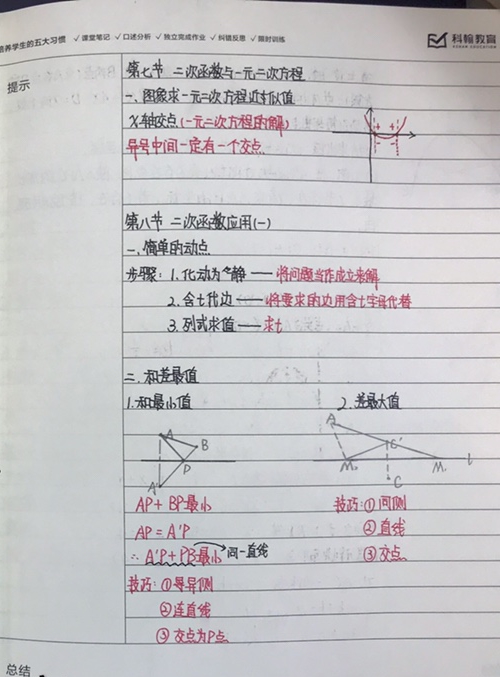 培养学生的五大习惯 ✓课堂笔记 ✓口述分析 ✓独立完成作业 ✓纠错反思 ✓限时训练
科翰教育
KEHAN EDUCATION
提示
第七节 二次函数与一元二次方程
一、图象求一元二次方程近似值
X轴交点(一元二次方程的解)
异号中间一定有一个交点
+ +
- -
第八节 二次函数应用(一)
一、简单的动点
步骤：1. 化动为静 — 将问题当作成立来解
2. 含t代边 — 将要求的边用含t字母代替
3. 列式求值 — 求t
二、和差最值
1.和最小值
2. 差最大值
A
B
P
A'
A
C'
M
M
l
C
AP + BP最小
AP = A'P
∴ A'P+PB最小 同一直线
技巧：①寻异侧
②连直线
③交点为P点
技巧：①同侧
②直线
③交点
总结